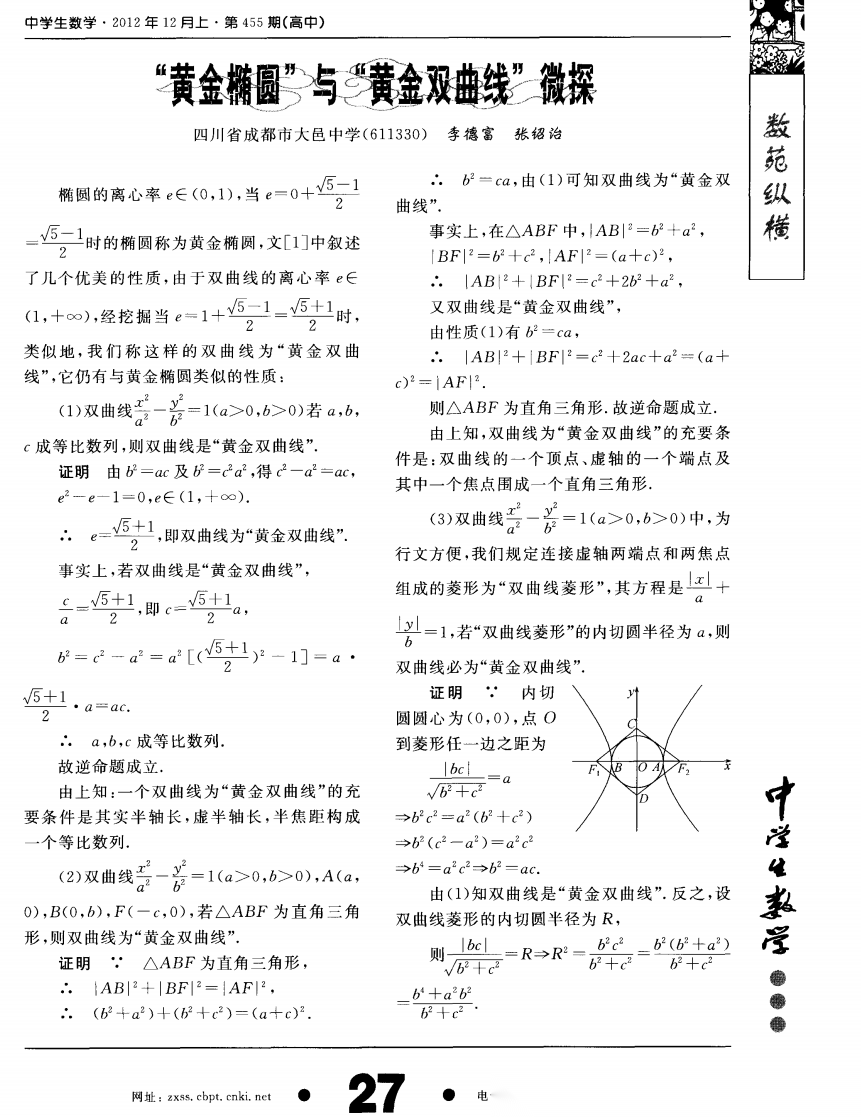 中学生数学·2012年12月上·第455期(高中)
“黄金椭圆”与“黄金双曲线”微探
四川省成都市大邑中学(611330) 李德富 张绍治
椭圆的离心率 e∈(0,1),当 e=0+(√5−1)/2
=(√5−1)/2时的椭圆称为黄金椭圆,文[1]中叙述
了几个优美的性质,由于双曲线的离心率 e∈
(1,+∞),经挖掘当 e=1+(√5−1)/2=(√5+1)/2时,
类似地,我们称这样的双曲线为“黄金双曲
线”,它仍有与黄金椭圆类似的性质:
(1)双曲线x²/a²−y²/b²=1(a>0,b>0)若 a,b,
c 成等比数列,则双曲线是“黄金双曲线”.
证明 由 b²=ac 及 b²=c²a²,得 c²−a²=ac,
e²−e−1=0,e∈(1,+∞).
∴ e=(√5+1)/2,即双曲线为“黄金双曲线”.
事实上,若双曲线是“黄金双曲线”,
c/a=(√5+1)/2,即 c=(√5+1)/2 a,
b²=c²−a²=a²[((√5+1)/2)²−1]=a·
(√5+1)/2·a=ac.
∴ a,b,c 成等比数列.
故逆命题成立.
由上知:一个双曲线为“黄金双曲线”的充
要条件是其实半轴长,虚半轴长,半焦距构成
一个等比数列.
(2)双曲线x²/a²−y²/b²=1(a>0,b>0),A(a,
0),B(0,b),F(−c,0),若△ABF 为直角三角
形,则双曲线为“黄金双曲线”.
证明 ∵ △ABF 为直角三角形,
∴ |AB|²+|BF|²=|AF|²,
∴ (b²+a²)+(b²+c²)=(a+c)².
∴ b²=ca,由(1)可知双曲线为“黄金双
曲线”.
事实上,在△ABF 中,|AB|²=b²+a²,
|BF|²=b²+c²,|AF|²=(a+c)²,
∴ |AB|²+|BF|²=c²+2b²+a²,
又双曲线是“黄金双曲线”,
由性质(1)有 b²=ca,
∴ |AB|²+|BF|²=c²+2ac+a²=(a+
c)²=|AF|².
则△ABF 为直角三角形.故逆命题成立.
由上知,双曲线为“黄金双曲线”的充要条
件是:双曲线的一个顶点、虚轴的一个端点及
其中一个焦点围成一个直角三角形.
(3)双曲线x²/a²−y²/b²=1(a>0,b>0)中,为
行文方便,我们规定连接虚轴两端点和两焦点
组成的菱形为“双曲线菱形”,其方程是|x|/a+
|y|/b=1,若“双曲线菱形”的内切圆半径为 a,则
双曲线必为“黄金双曲线”.
证明 ∵ 内切
圆圆心为(0,0),点 O
到菱形任一边之距为
|bc|/√(b²+c²)=a
⇒b²c²=a²(b²+c²)
⇒b²(c²−a²)=a²c²
⇒b⁴=a²c²⇒b²=ac.
y
C
F₁ B O A F₂ x
D
由(1)知双曲线是“黄金双曲线”.反之,设
双曲线菱形的内切圆半径为 R,
则 |bc|/√(b²+c²)=R⇒R²=b²c²/(b²+c²)=b²(b²+a²)/(b²+c²)
=(b⁴+a²b²)/(b²+c²).
数苑纵横
中学生数学
网址:zxss.cbpt.cnki.net ● 27 ● 电